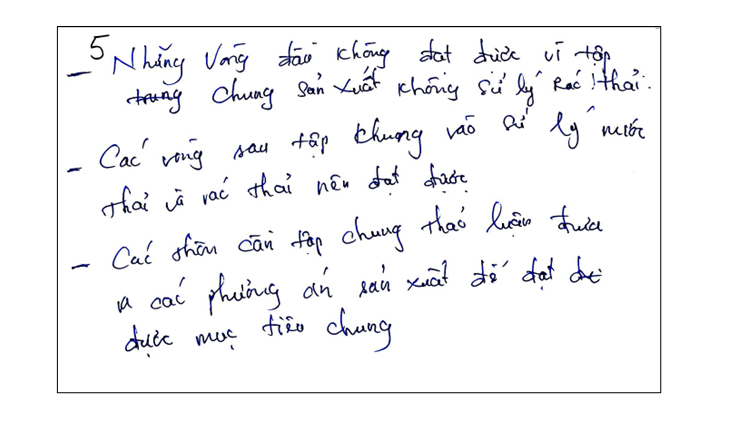 5
- Những Vòng đầu không đạt được vì tập
trung chung sản xuất không sử lý Rác thải.
- Các vòng sau tập chung vào sử lý nước
thải và rác thải nên đạt được
- Các thôn cần tập chung thảo luận đưa
ra các phương án sản xuất để đạt
được mục tiêu chung